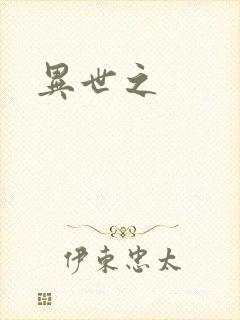 異世之
伊东忠太